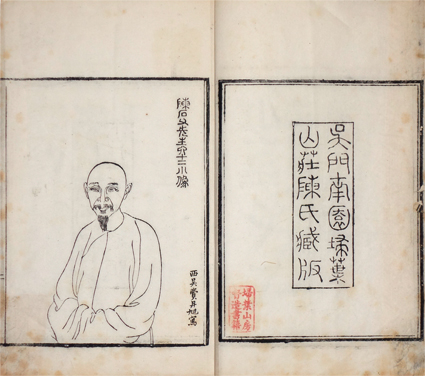 吳門南園埽葉
山莊陳氏藏版
埽葉山房
督造書籍
陳石父先生小像
西吳費丹旭寫